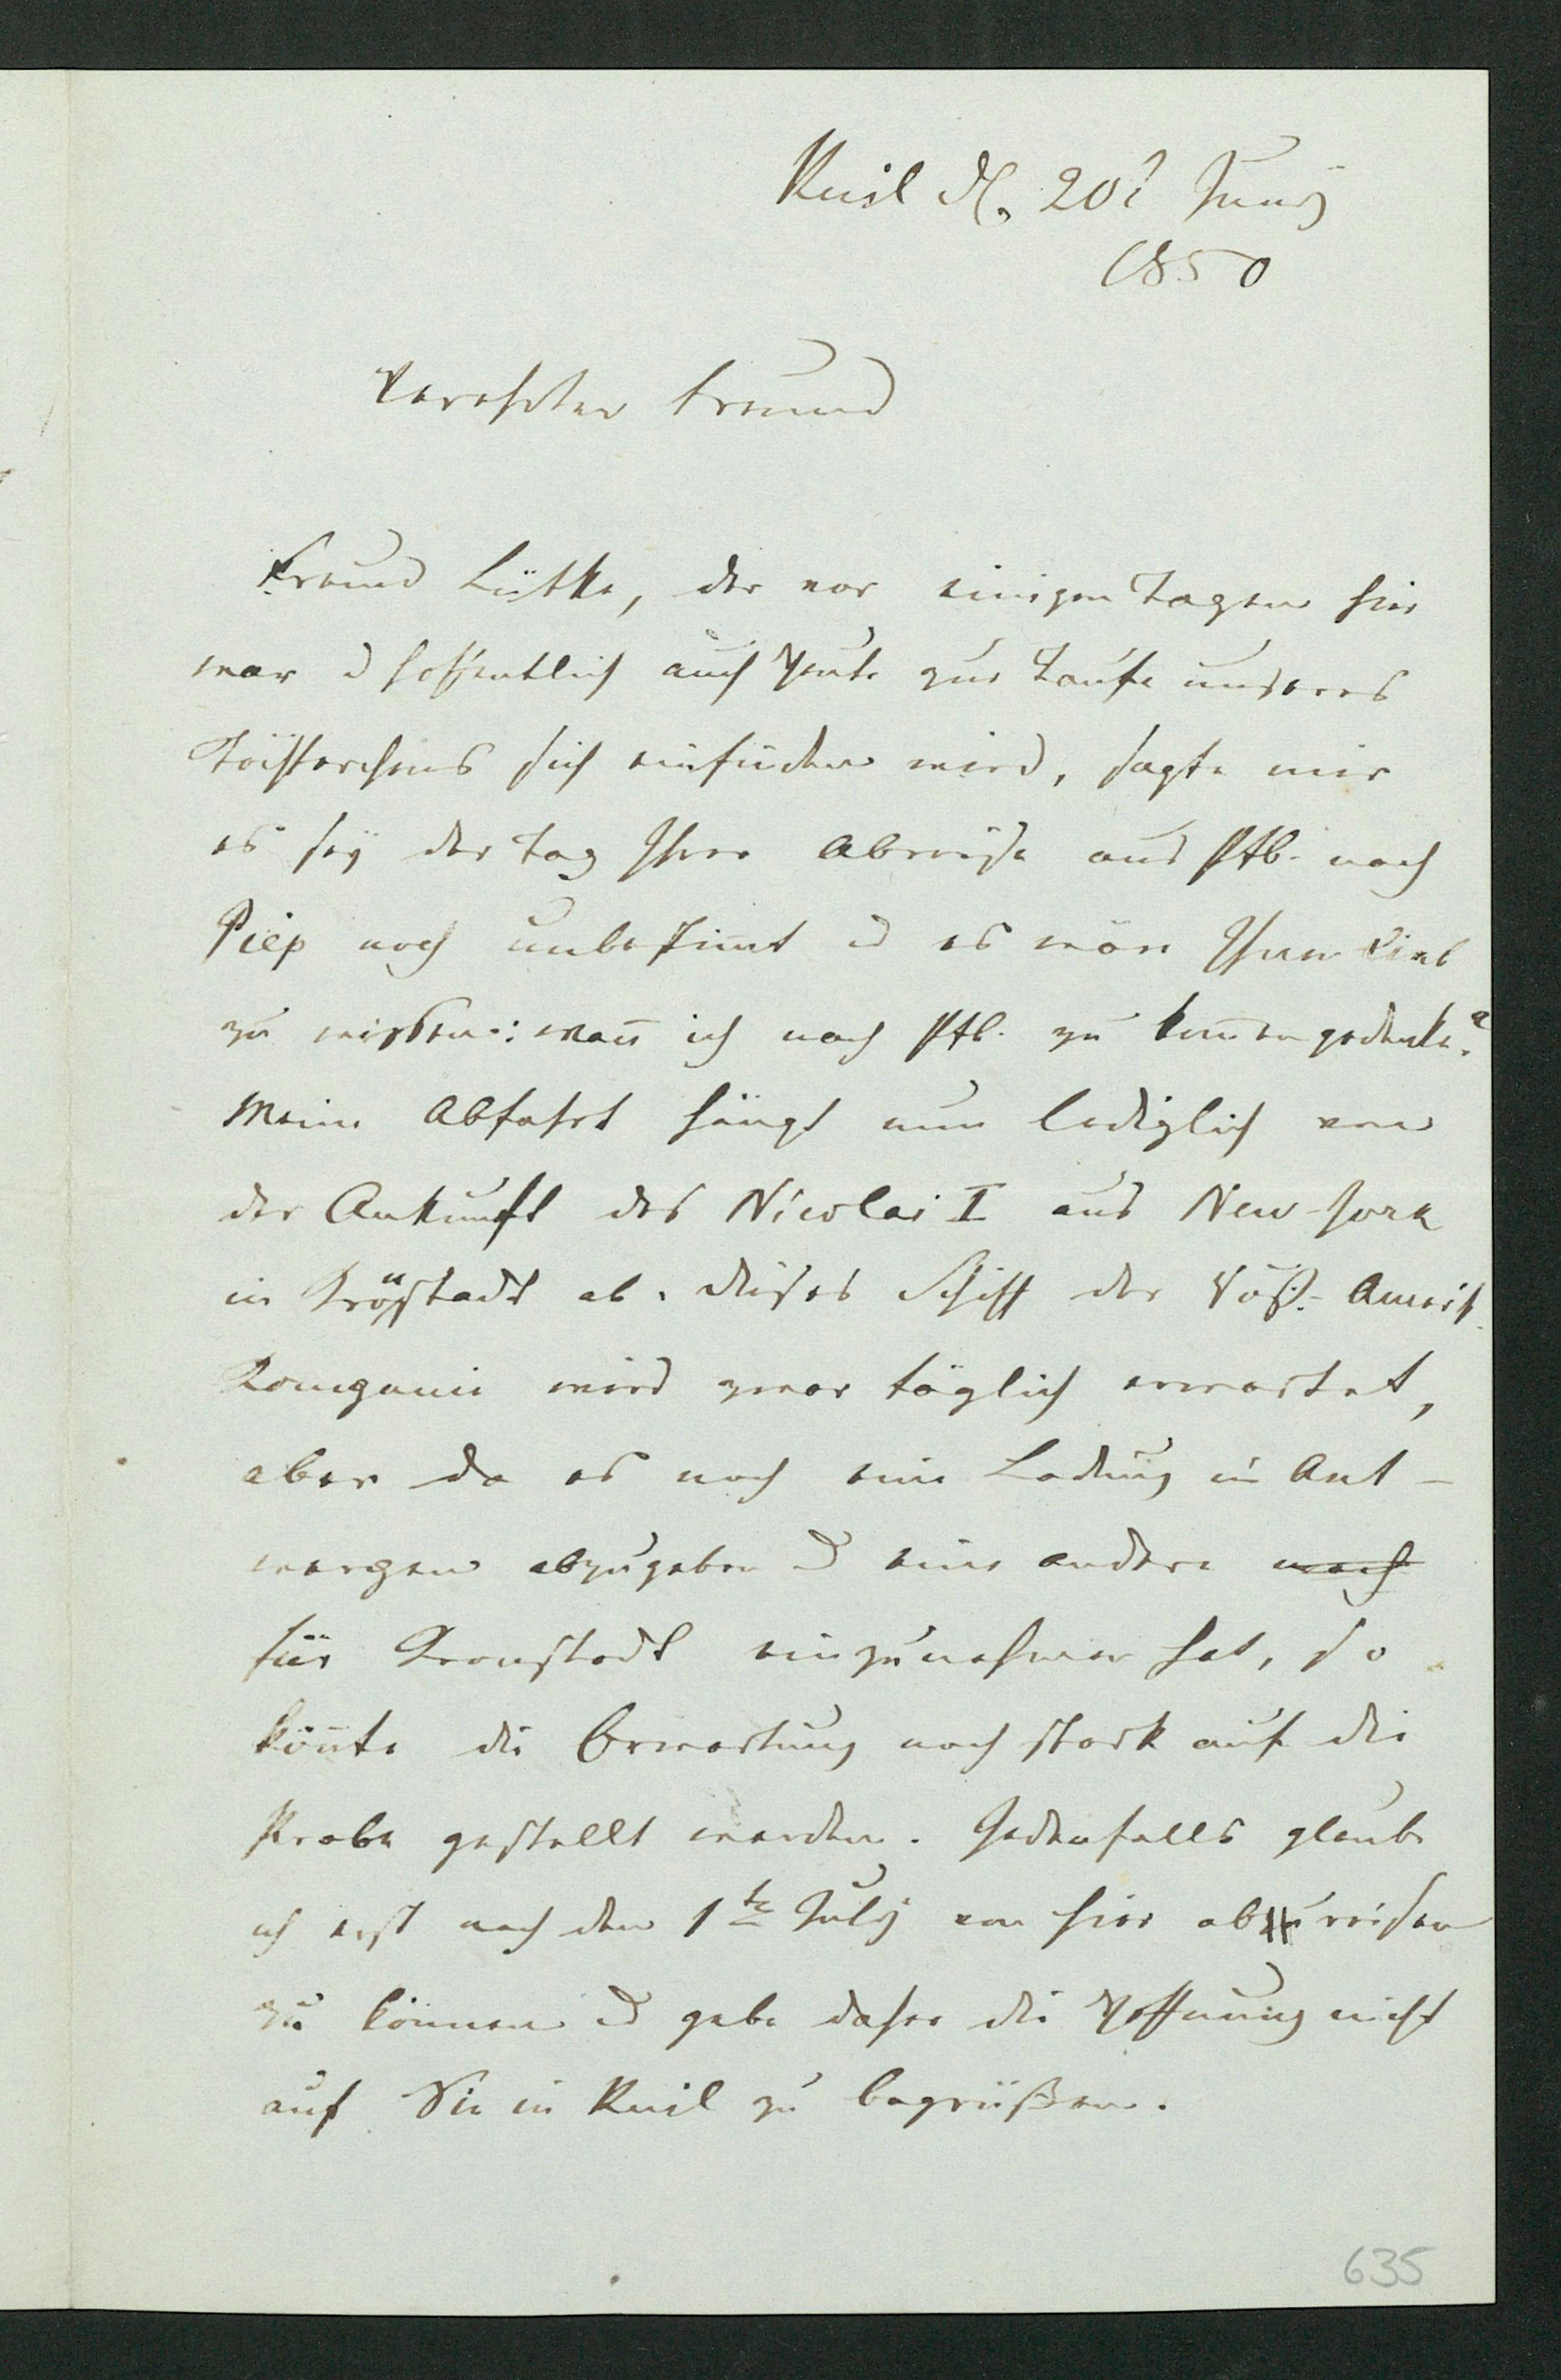 Ruil d. 20t Juny
1850
Verehrter Freund
Freund Lütke, der vor einigen Tagen hier
war u hoffentlich auch heute zur Taufe unseres
Töchterchens sich einfinden wird, sagte mir
es sey der Tag Ihrer Abreise aus Ptb. nach
Piep noch unbestim̄t u es wäre Ihnen lieb
zu wissen: wan̄ ich nach Ptb. zu kom̄en gedenke?
Meine Abfahrt hängt nun lediglich von
der Ankunft des Nicolai I aus New-York
in Kronstadt ab. Dieses Schiff der Russ.- Amerik.
Kompanie wird zwar täglich erwartet,
aber da es noch eine Ladung in Ant-
werpen abzugeben u eine andere noch
für Kronstadt einzunehmen hat, so
kön̄te die Erwartung noch stark auf die
Probe gestellt werden. Jedenfalls glaube
ich erst nach dem 1ten July von hier abreisen
zu können u gebe daher die Hoffnung nicht
auf Sie in Ruil zu begrüßen.
635